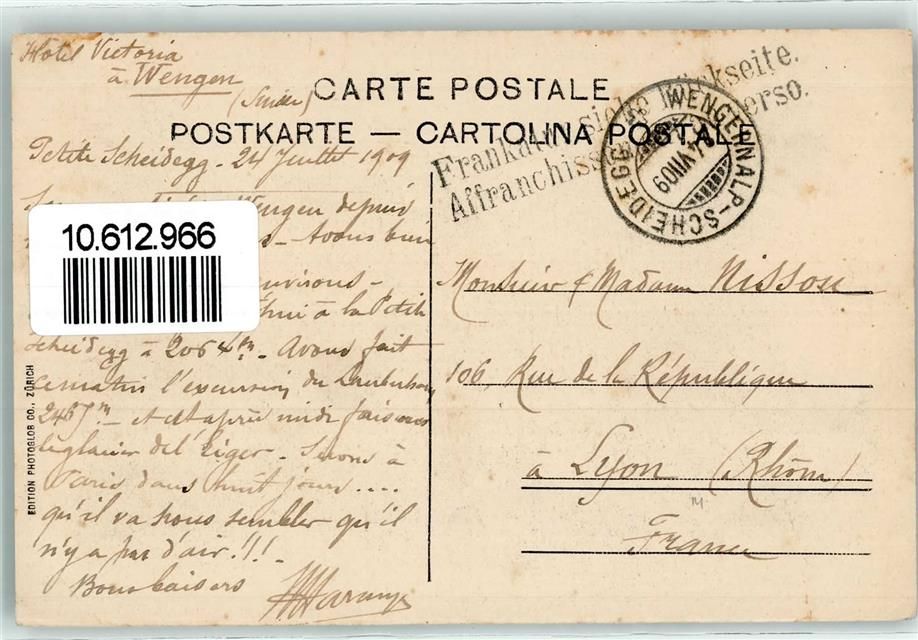 Hôtel Victoria
à Wengen
(Suisse)
CARTE POSTALE
POSTKARTE — CARTOLINA POSTALE
Frankatur siehe Rückseite.
Affranchiss verso.
WENGERNALP-SCHEIDEGG
Petite Scheidegg - 24 Juillet 1909
Wengen depuis
- Avons bien
10.612.966
environs -
à la Petite
Scheidegg à 2064m - Avons fait
ce matin l'excursion du Lauberhorn
2467m - et cet après midi faisons
le glacier de l'Eiger - Serons à
Paris dans huit jours ....
qu'il va nous sembler qu'il
n'y a pas d'air !!! -
Bons baisers
Monsieur & Madame Nisson
106, Rue de la République
à Lyon (Rhône)
France
EDITION PHOTOGLOB CO., ZÜRICH